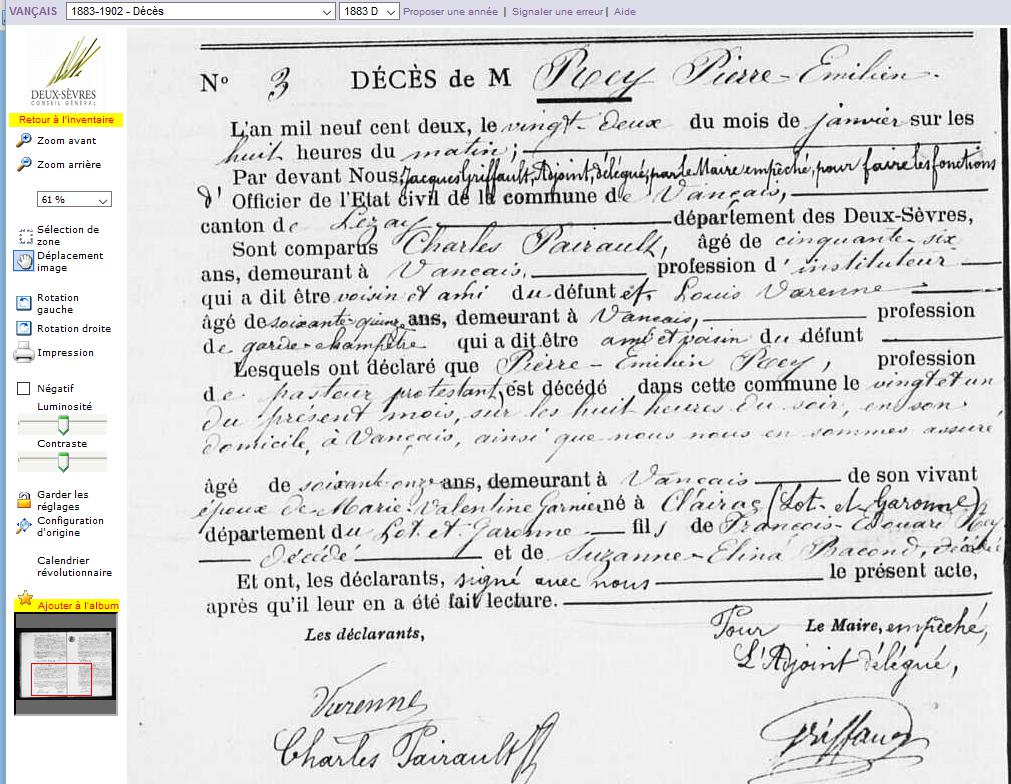 VANÇAIS 1883-1902 - Décès 1883 D Proposer une année | Signaler une erreur | Aide
DEUX-SÈVRES
CONSEIL GÉNÉRAL
Retour à l'inventaire
Zoom avant
Zoom arrière
61 %
Sélection de
zone
Déplacement
image
Rotation
gauche
Rotation droite
Impression
Négatif
Luminosité
Contraste
Garder les
réglages
Configuration
d'origine
Calendrier
révolutionnaire
Ajouter à l'album
N° 3 DÉCÈS de M Rey Pierre-Emilien.
L'an mil neuf cent deux, le vingt-deux du mois de janvier sur les
huit heures du matin;
Par devant Nous, Jacques Griffault, Adjoint, délégué, par le Maire empêché, pour faire les fonctions
d' Officier de l'Etat civil de la commune de Vançais,
canton de Lezay département des Deux-Sèvres,
Sont comparus Charles Pairault, âgé de cinquante-six
ans, demeurant à Vançais, profession d'instituteur
qui a dit être voisin et ami du défunt et, Louis Varenne
âgé de soixante-quinze ans, demeurant à Vançais, profession
de garde-champêtre qui a dit être ami et voisin du défunt
Lesquels ont déclaré que Pierre-Emilien Rey, profession
de pasteur protestant, est décédé dans cette commune le vingt et un
du présent mois, sur les huit heures du soir, en son
domicile, à Vançais, ainsi que nous nous en sommes assuré
âgé de soixante-onze ans, demeurant à Vançais de son vivant
époux de Marie-Valentine Garnier né à Clairac (Lot-et-Garonne)
département du Lot-et-Garonne fils de François-Edouard Rey
décédé et de Suzanne-Elina Bacond, décédée
Et ont, les déclarants, signé avec nous le présent acte,
après qu'il leur en a été fait lecture.
Les déclarants,
Pour Le Maire, empêché,
L'Adjoint délégué,
Varenne
Charles Pairault
Griffault